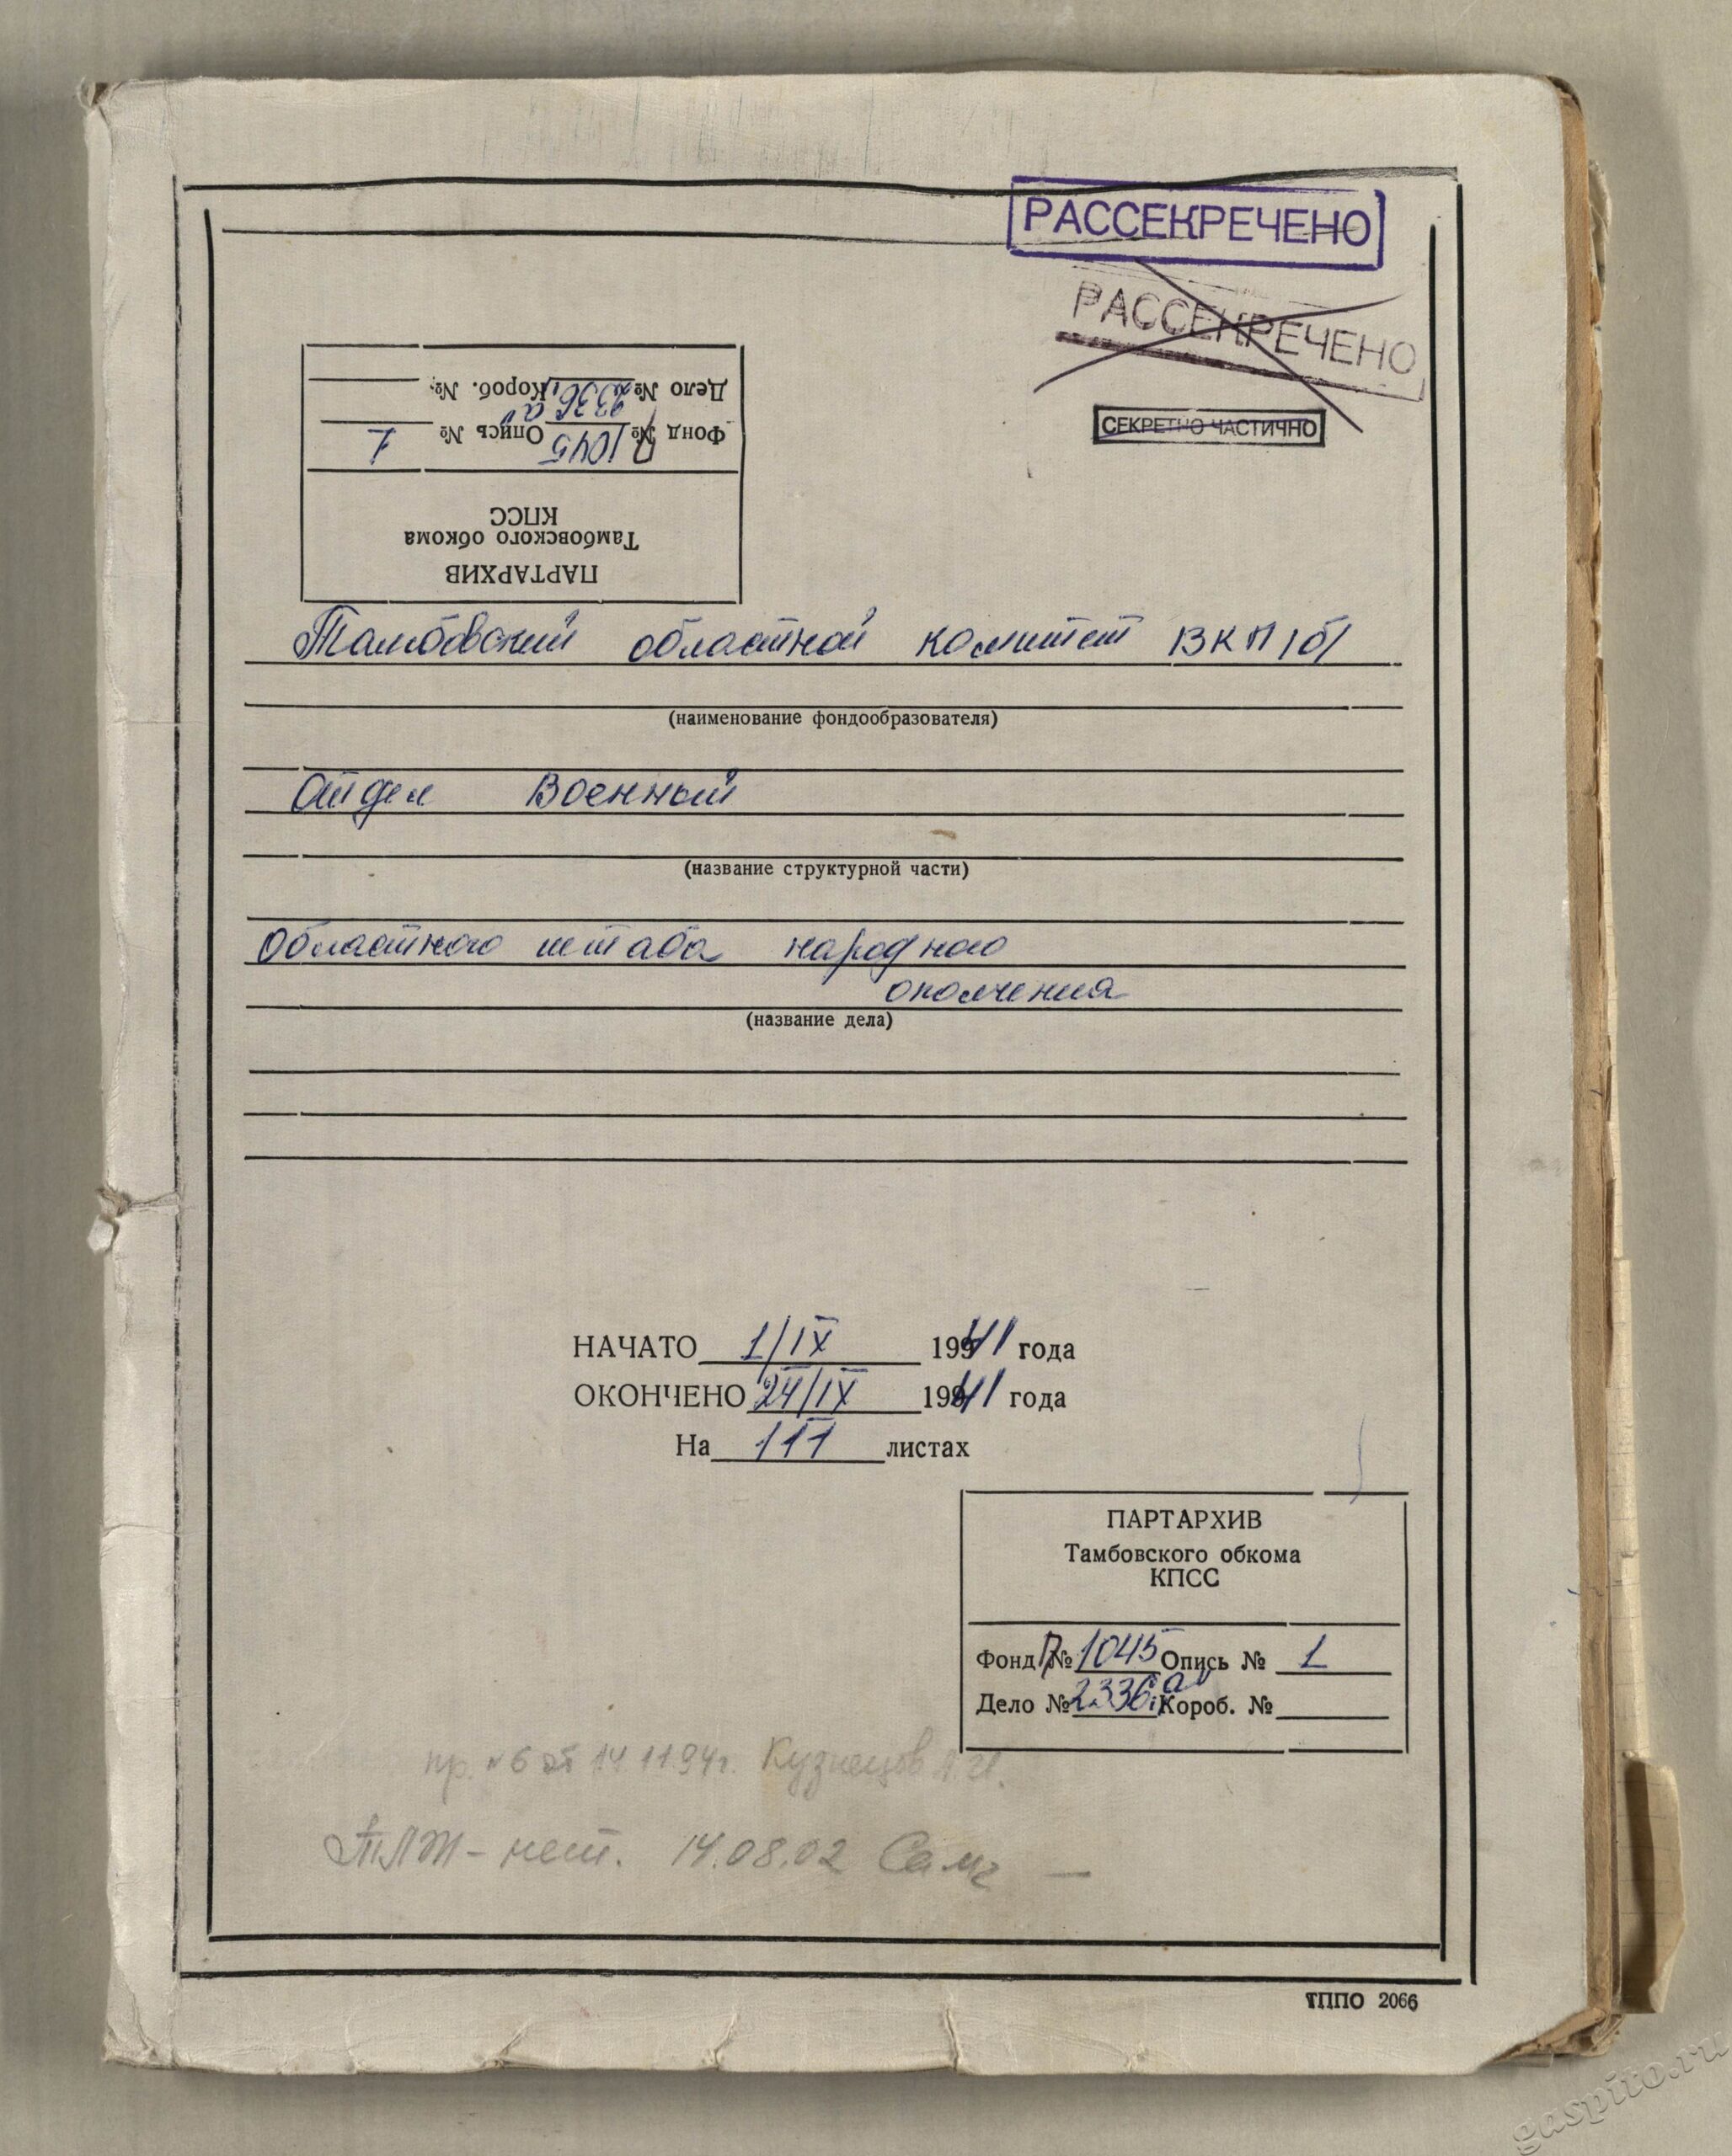 РАССЕКРЕЧЕНО
РАССЕКРЕЧЕНО
СЕКРЕТНО ЧАСТИЧНО
ПАРТАРХИВ
Тамбовского обкома
КПСС
Фонд П№ 1045 Опись № 1
Дело № 2336а Короб. №
Тамбовский областной комитет ВКП/б/
(наименование фондообразователя)
Отдел Военный
(название структурной части)
Областного штаба народного
ополчения
(название дела)
НАЧАТО 1/IX 1941 года
ОКОНЧЕНО 24/IX 1941 года
На 111 листах
ПАРТАРХИВ
Тамбовского обкома
КПСС
Фонд П№ 1045 Опись № 1
Дело № 2336а Короб. №
пр. №6 от 14 11 94г. Кузнецов
нет. 14.08.02
ТППО 2066
gaspito.ru